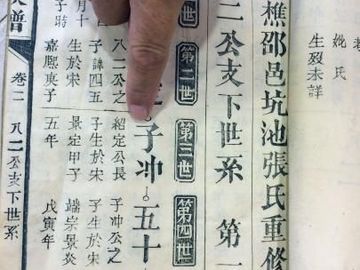 姓氏
生歿未詳
樵邵邑坑池張氏重修
二公支下世系 第一
世
第二世
第三世
第四世
子冲
五十
八二公之
子諱四五
生於宋
嘉熙庚子
紹定公長
子生於宋
景定甲子
五年
子冲公之
子生於宋
端宗景炎
戊寅年
月十
子時
譜
卷二
八二公支下世系